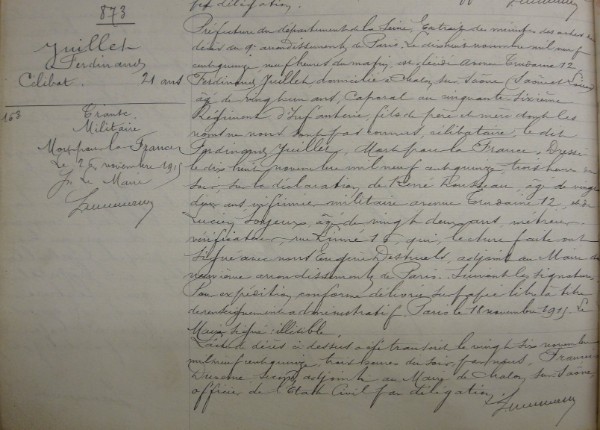 par délégation.
873
Juillet
Ferdinand
Célibat. 21 ans
163
Militaire
Mort pour la France
Le 26 novembre 1915
Le Maire
Préfecture du département de la Seine, Extrait des minutes des actes de
décès du 9e arrondissement de Paris. Le dix huit novembre mil neuf
cent quinze neuf heures du matin, est décédé Avenue Trudaine 12
Ferdinand Juillet, domicilié à Chalon sur Saône (Saône et Loire)
âgé de vingt un ans, Caporal au cinquante sixième
Régiment d'Infanterie, fils de père et mère dont les
noms ne nous sont pas connus, célibataire, le dit
Ferdinand Juillet, Mort pour la France. Dressé
le dix huit novembre mil neuf cent quinze, trois heures du
soir, sur la déclaration de René Rousseau, âgé de vingt
deux ans infirmier militaire avenue Trudaine 12, et de
Lucien âgé de vingt deux ans, métreur
vérificateur, rue 15, qui, lecture faite ont
signé avec nous Eugène adjoint au Maire du
neuvième arrondissement de Paris. Suivent les signatures
Pour expédition conforme délivrée sur papier libre à titre
de renseignement administratif Paris le 18 novembre 1915. Le
Maire signé: illisible
L'acte de décès ci dessus a été transcrit le vingt six novembre
mil neuf cent quinze, trois heures du soir, par nous,
adjoint au Maire de Chalon sur Saône
officier de l'Etat Civil par délégation